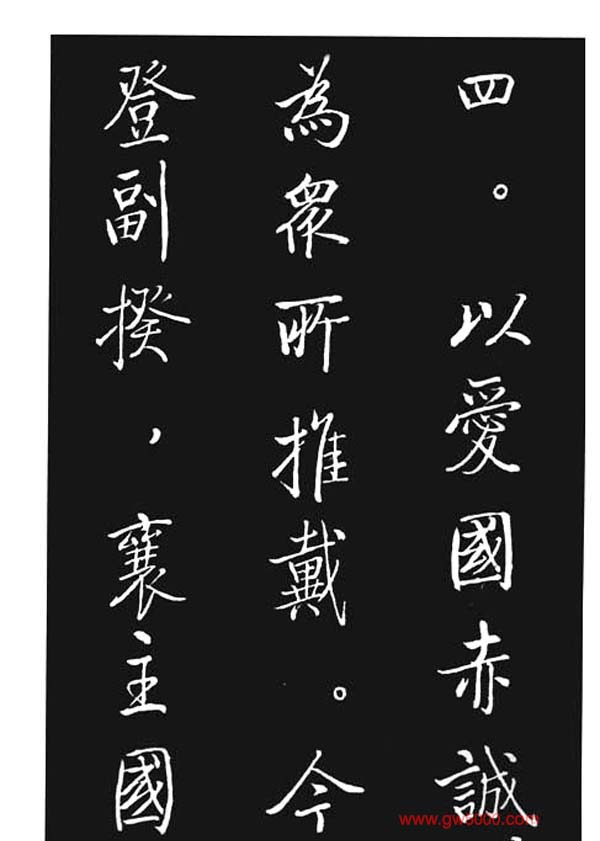 四。以愛國赤誠，
為眾所推戴。今
登副揆，襄主國
www.gw5000.com